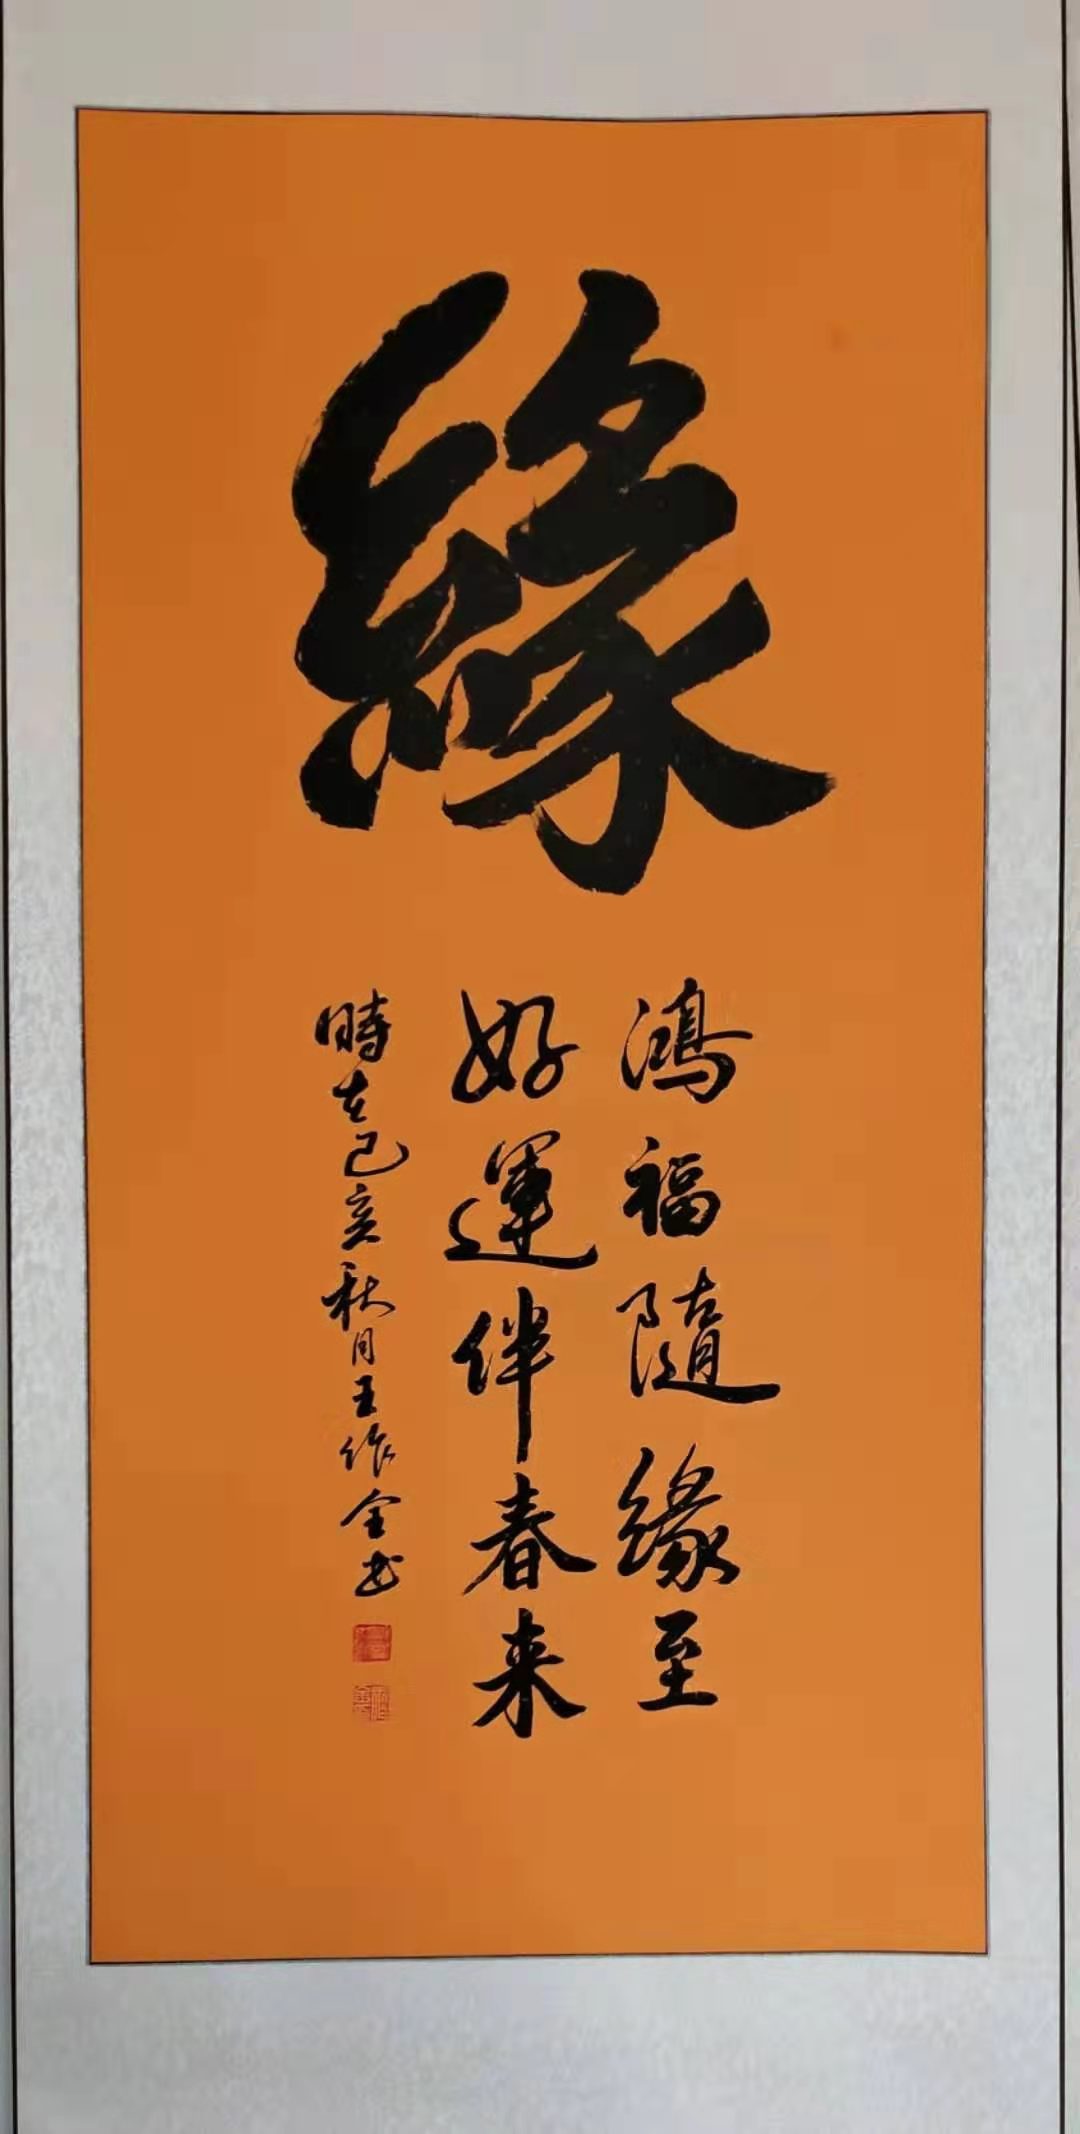 緣
鴻福隨緣至
好運伴春来
時在己亥秋月王作全书